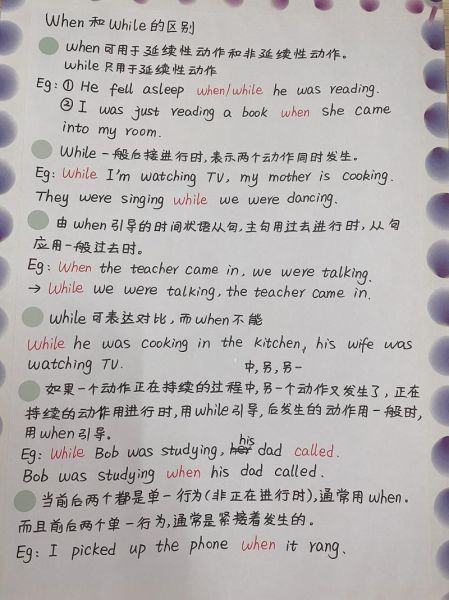 When 和 While 的区别
when 可用于延续性动作和非延续性动作。
while 只用于延续性动作
Eg: ① He fell asleep when/while he was reading.
② I was just reading a book when she came
into my room.
While 一般后接进行时,表示两个动作同时发生。
Eg: While I'm watching TV, my mother is cooking.
They were singing while we were dancing.
由 when 引导的时间状语从句,主句用过去进行时,从句
应用一般过去时。
Eg: When the teacher came in, we were talking.
→ While we were talking, the teacher came in.
while 可表达对比,而 when 不能
While he was cooking in the kitchen, his wife was
watching TV.
中,另,另一
如果一个动作正在持续的过程中,另一个动作又发生了,正在
持续的动作用进行时,用 while 引导,后发生的动作用一般时,
用 when 引导。
Eg: While Bob was studying, her his dad called.
Bob was studying when his dad called.
当前后两个都是单一行为(非正在进行时),通常用 when。
而且前后两个单一行为,通常是紧接着发生的。
Eg: I picked up the phone when it rang.